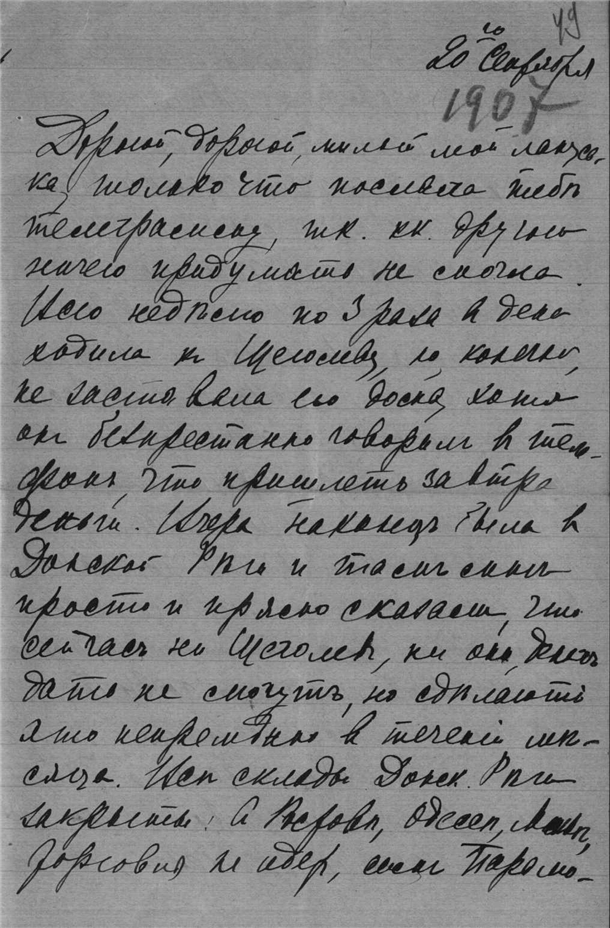 49
20го Сентября
1907
Дорогой, дорогой, милый мой лапуся-
ка, только что послала тебѣ
телеграмму, т.к. другого
ничего придумать не смогла.
Всю недѣлю по 3 раза в день
ходила къ Щеголеву, но конечно,
не заставала его дома, хотя
онъ безпрестанно говорилъ в теле-
фонъ, что пришлетъ завтра
деньги. Вчера наконецъ была в
Донской Рѣчи и тамъ мнѣ
просто и прямо сказали, что
сейчасъ ни Щеголевъ, ни они денегъ
дать не смогутъ, но сдѣлаютъ
это непремѣнно в теченіи мѣ-
сяца. Всѣ склады Донск. Рѣчи
закрыты: в Ростовѣ, Одессѣ,
торговля не идет, самъ Парамо-